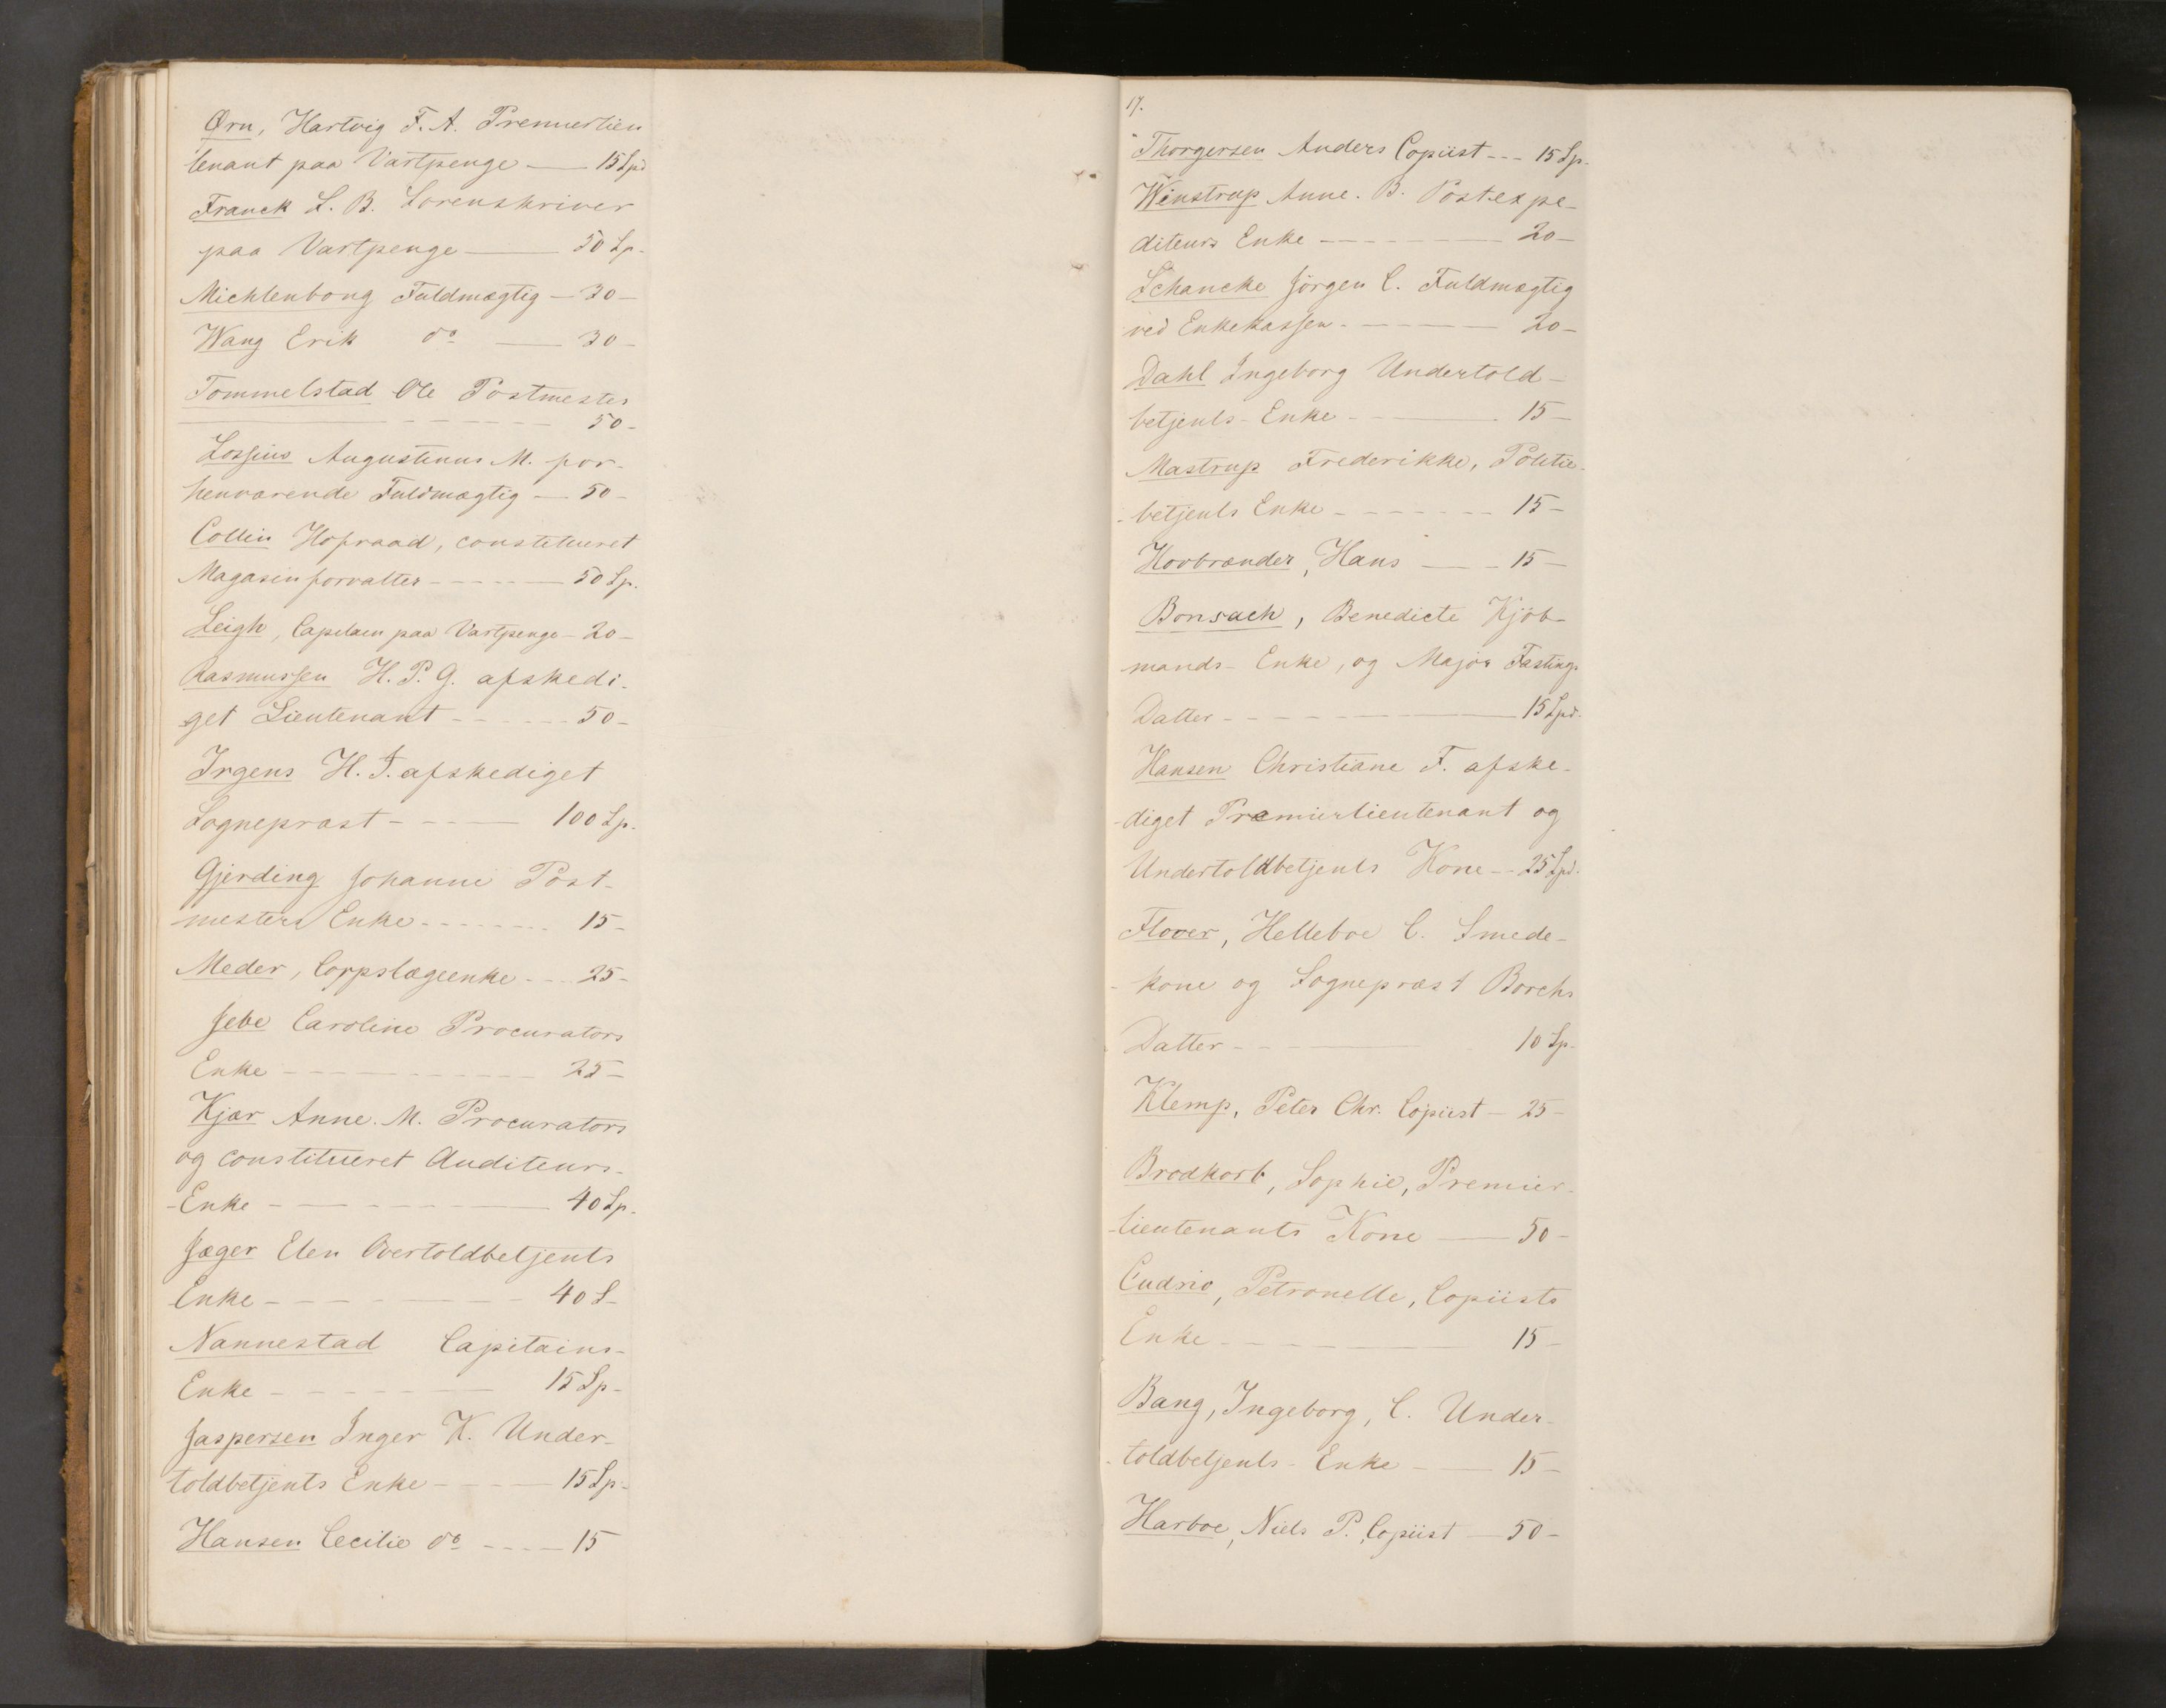 Ørn, Hartvig F. A. Premierlieu
tenant paa Vartpenge — 15 Spd
Franck L. B. Sorenskriver
paa Vartpenge — 50 Sp.
Michlenborg Fuldmægtig — 30 —
Wang Erik do — 30 —
Tommelstad Ole Postmester
— 50 —
Lossius Augustinus M. for-
henværende Fuldmægtig — 50 —
Collin Hofraad, constitueret
Magasinforvalter — 50 Sp.
Leigh, Capelaen paa Vartpenge — 20 —
Rasmussen H. P. G. afskedi-
get Lieutenant — 50 —
Irgens H. J. afskediget
Sognepræst — 100 Sp.
Gjerding Johanne Post-
mesters Enke — 15 —
Meder, Corpslægeenke — 25 —
Jebe Caroline Procurators
Enke — 25 —
Kjær Anne. M. Procurators
og constitueret Auditeurs-
-Enke — 40 Sp.
Jæger Elen Overtoldbetjents
Enke — 40 S —
Nannestad Capitains-
Enke — 15 Sp —
Jaspersen Inger K. Under-
toldbetjents Enke — 15 Sp —
Hansen Cecilie do — 15
17.
Thorgersen Anders Copiist — 15 Sp.
Winstrup Anne. B. Postexpe-
diteurs Enke — 20 —
Schancke Jørgen C. Fuldmægtig
ved Enkekassen — 20 —
Dahl Ingeborg Undertold-
betjents-Enke — 15 —
Mastrup Frederikke, Politie-
-betjents Enke — 15 —
Hovbrænder, Hans — 15 —
Bonsach, Benedicte Kjöb-
mands-Enke, og Major Fastings
Datter — 15 Spd.
Hansen Christiane F. afske-
-diget Premierlieutenant og
Undertoldbetjents Kone — 25 Spd.
Floer, Helleboe C. Smede-
-kone og Sognepræst Borchs
Datter — 10 Sp —
Klemp, Peter Chr. Copiist — 25 —
Brodkorb, Sophie, Premier-
-lieutenants Kone — 50 —
Cudrio, Petronelle, Copiists
Enke — 15 —
Bang, Ingeborg, C. Under-
-toldbetjents-Enke — 15 —
Harboe, Niels P. Copiist — 50 —